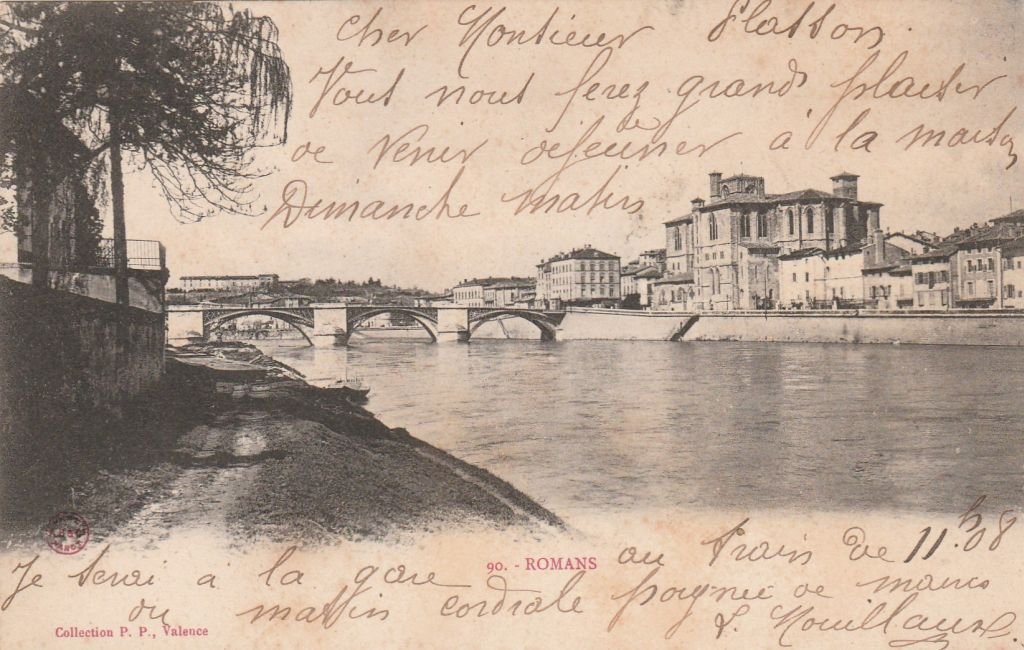 Cher Monsieur Flasson.
Vous nous ferez grand plaisir
de venir dejeuner à la maison
Dimanche matin
Je serai à la gare au train de 11.h 08
90. - ROMANS
du matin cordiale poignée de mains
Collection P. P., Valence